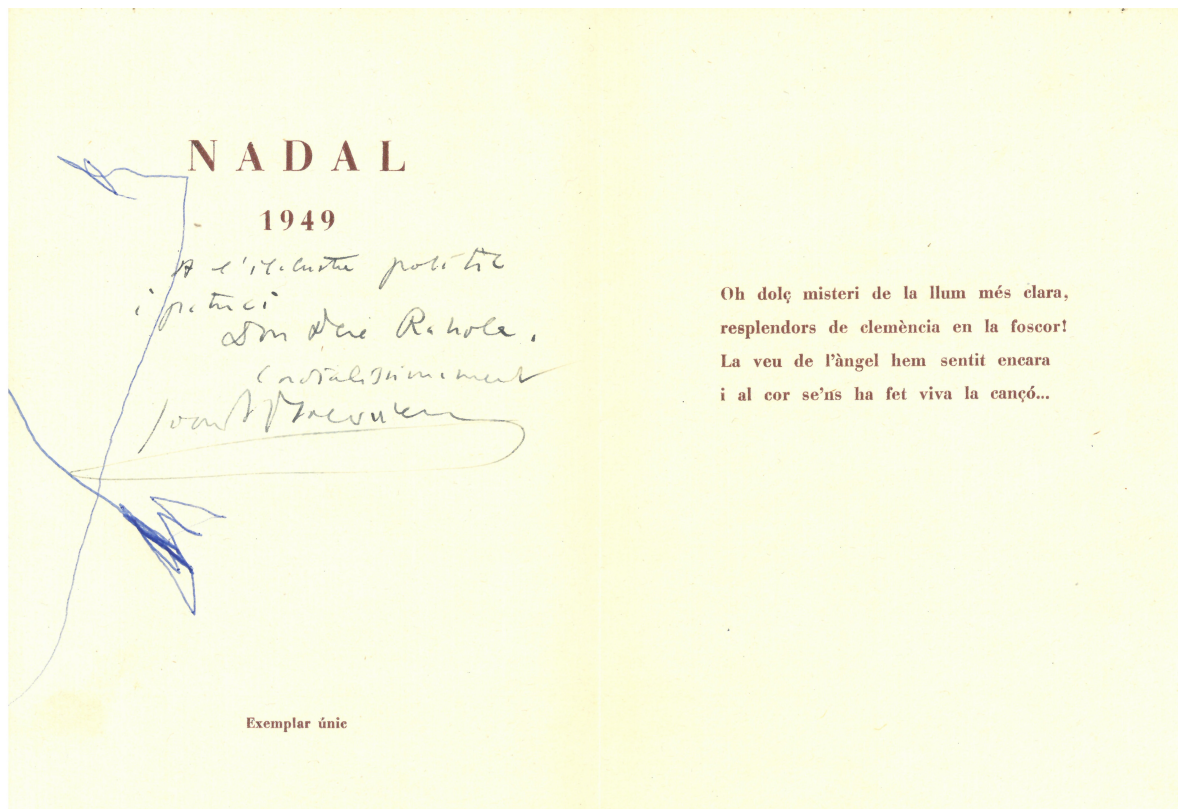 NADAL
1949
A l'il·lustre polític
i patrici
Don Deri Rahola.
Cordialissimament
Joan
Exemplar únic
Oh dolç misteri de la llum més clara,
resplendors de clemència en la foscor!
La veu de l'àngel hem sentit encara
i al cor se'ns ha fet viva la cançó...